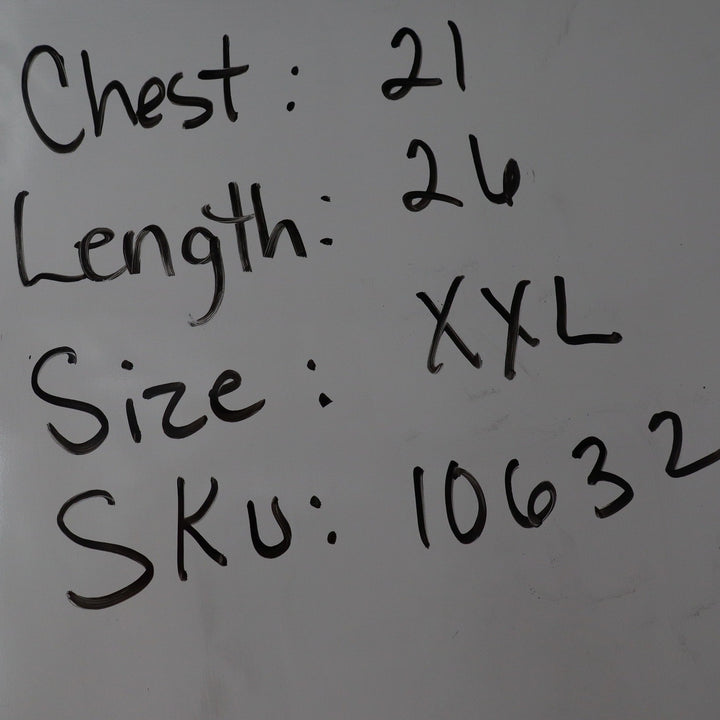 Chest: 21
Length: 26
Size: XXL
SKU: 10632